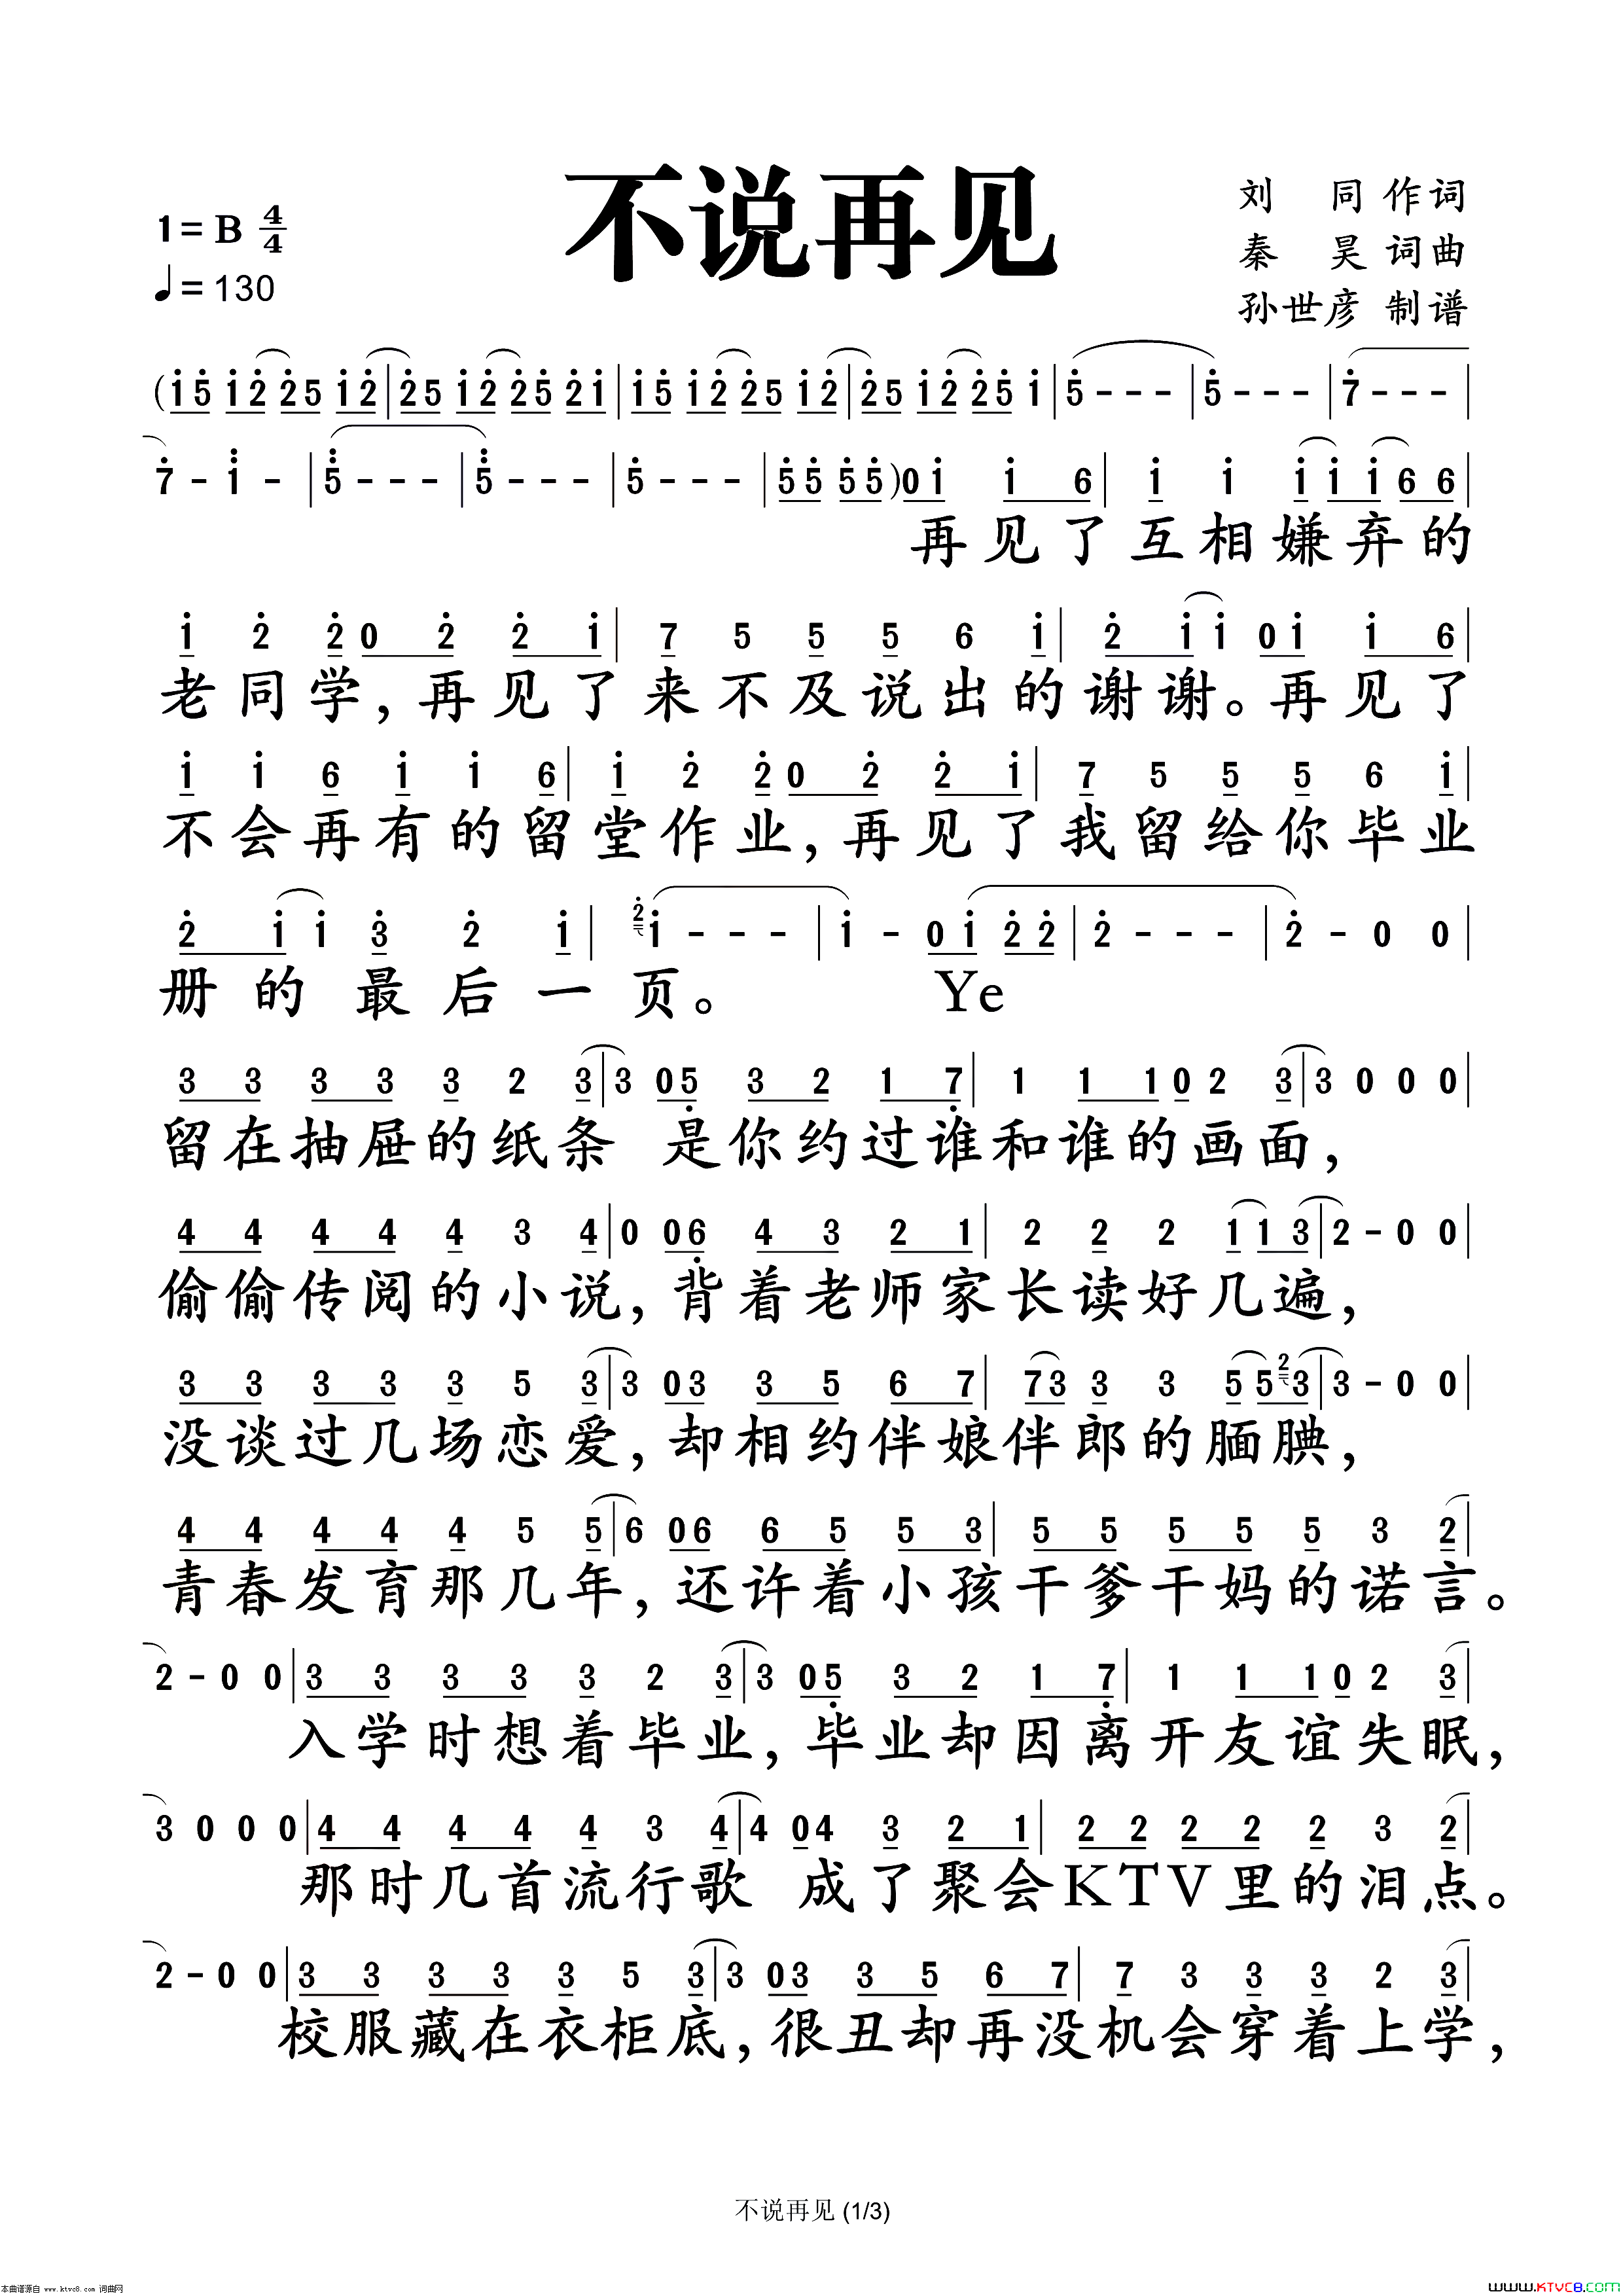 不说再见
1=B 4/4
♩=130
刘 同 作词
秦 昊 词曲
孙世彦 制谱
(i 5 i 2 2 5 i 2 | 2 5 i 2 2 5 2 i | i 5 i 2 2 5 i 2 | 2 5 i 2 2 5 i | 5 - - - | 5 - - - | 7 - - - |
7 - i - | 5 - - - | 5 - - - | 5 - - - | 5 5 5 5) 0 i i 6 | i i i i i 6 6 |
再见了互相嫌弃的
i 2 2 0 2 2 i | 7 5 5 5 6 i | 2 i i 0 i i 6 |
老同学,再见了来不及说出的谢谢。再见了
i i 6 i i 6 | i 2 2 0 2 2 i | 7 5 5 5 6 i |
不会再有的留堂作业,再见了我留给你毕业
2 i i 3 2 i | 2 i - - - | i - 0 i 2 2 | 2 - - - | 2 - 0 0 |
册的最后一页。 Ye
3 3 3 3 3 2 3 | 3 0 5 3 2 1 7 | 1 1 1 0 2 3 | 3 0 0 0 |
留在抽屉的纸条 是你约过谁和谁的画面,
4 4 4 4 4 3 4 | 0 0 6 4 3 2 1 | 2 2 2 1 1 3 | 2 - 0 0 |
偷偷传阅的小说,背着老师家长读好几遍,
3 3 3 3 3 5 3 | 3 0 3 3 5 6 7 | 7 3 3 3 5 5 2 3 | 3 - 0 0 |
没谈过几场恋爱,却相约伴娘伴郎的腼腆,
4 4 4 4 4 5 5 | 6 0 6 6 5 5 3 | 5 5 5 5 5 3 2 |
青春发育那几年,还许着小孩干爹干妈的诺言。
2 - 0 0 | 3 3 3 3 3 2 3 | 3 0 5 3 2 1 7 | 1 1 1 0 2 3 |
入学时想着毕业,毕业却因离开友谊失眠,
3 0 0 0 | 4 4 4 4 4 3 4 | 4 0 4 3 2 1 | 2 2 2 2 2 3 2 |
那时几首流行歌 成了聚会KTV里的泪点。
2 - 0 0 | 3 3 3 3 3 5 3 | 3 0 3 3 5 6 7 | 7 3 3 3 2 3 |
校服藏在衣柜底,很丑却再没机会穿着上学,
不说再见 (1/3)
本曲谱源自 www.ktvc8.com 词曲网
www.KTVC8.COM